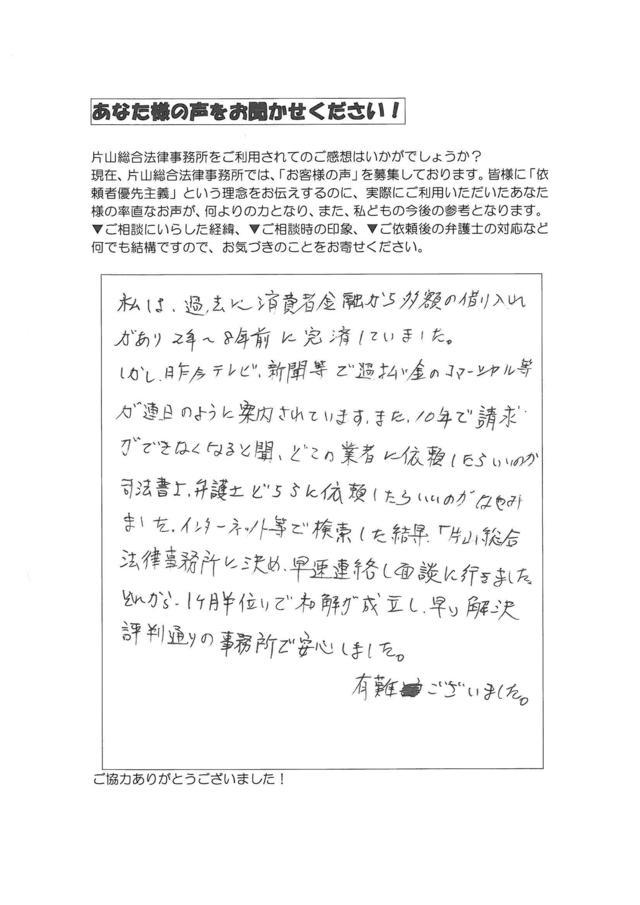 あなた様の声をお聞かせください！
片山総合法律事務所をご利用されてのご感想はいかがでしょうか？
現在、片山総合法律事務所では、「お客様の声」を募集しております。皆様に「依
頼者優先主義」という理念をお伝えするのに、実際にご利用いただいたあなた
様の率直なお声が、何よりの力となり、また、私どもの今後の参考となります。
▼ご相談にいらした経緯、▼ご相談時の印象、▼ご依頼後の弁護士の対応など
何でも結構ですので、お気づきのことをお寄せください。
私は、過去に消費者金融から多額の借り入れ
があり2年〜8年前に完済していました。
しかし、昨今テレビ、新聞等で過払い金のコマーシャル等
が連日のように案内されています。また、10年で請求
ができなくなると聞、どこの業者に依頼したらいいのか
司法書士、弁護士どちらに依頼したらいいのかなやみ
ました。インターネット等で検索した結果、「片山総合
法律事務所に決め、早速連絡し面談に行きました。
それから、1ヶ月半位いで和解が成立し、早い解決
評判通りの事務所で安心しました。
有難ございました。
ご協力ありがとうございました！